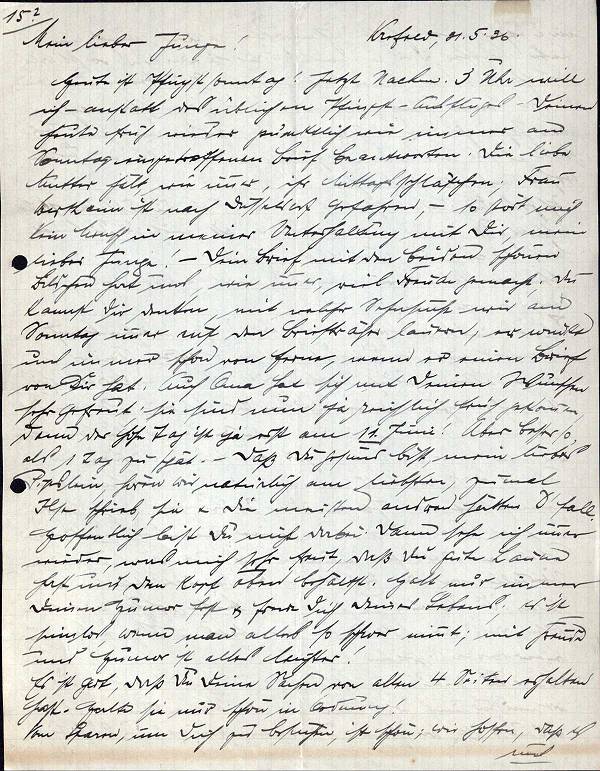 15.2
Mein lieber Junge! Krefeld, 31.5.36.
Heute ist Pfingstsonntag! Jetzt Nachm. 3 Uhr will
ich – anstatt des üblichen Pfingst-Ausfluges – Deinen
heute früh wieder pünktlich wie immer am
Sonntag eingetroffenen Brief beantworten. Die liebe
Mutter hält wie immer, ihr Mittagsschläfchen. Frau
ist nach Düsseldorf gefahren, – so stört mich
kein Mensch in meiner Unterhaltung mit Dir, mein
lieber Junge! – Dein Brief mit den beiden schönen
Bildchen hat uns, wie immer, viel Freude gemacht. Du
kannst Dir denken, mit welcher Sehnsucht wir am
Sonntag immer auf den Briefträger lauern, er winkt
uns immer schon von ferne, wenn er einen Brief
von Dir hat. Auch Oma hat sich mit Deinen Wünschen
sehr gefreut. sie sind nun ja reichlich früh gekommen,
denn der hohe Tag ist ja erst am 11. Juni! Aber besser so,
als 1 Tag zu spät. – Daß Du gesund bist mein liebes
hören wir natürlich am liebsten, zumal
Ilse schrieb, sie & die meisten anderen hätten
Hoffentlich bist Du nicht dabei. Dann sehe ich immer
wieder, was mich sehr freut, daß Du gute Laune
hast und den Kopf oben behältst. Halt nur immer
Deinen Humor fest & freue Dich Deines Lebens, es ist
sinnlos wenn man alles so schwer nimmt; mit Freude
und Humor ist alles leichter.
Es ist gut, daß Du Deine Sachen von allen 4 Seiten erhalten
hast. Halte sie nur schön in Ordnung!
Vom Sparen, um Dich zu besuchen, ist schön; wir hoffen, daß es
und